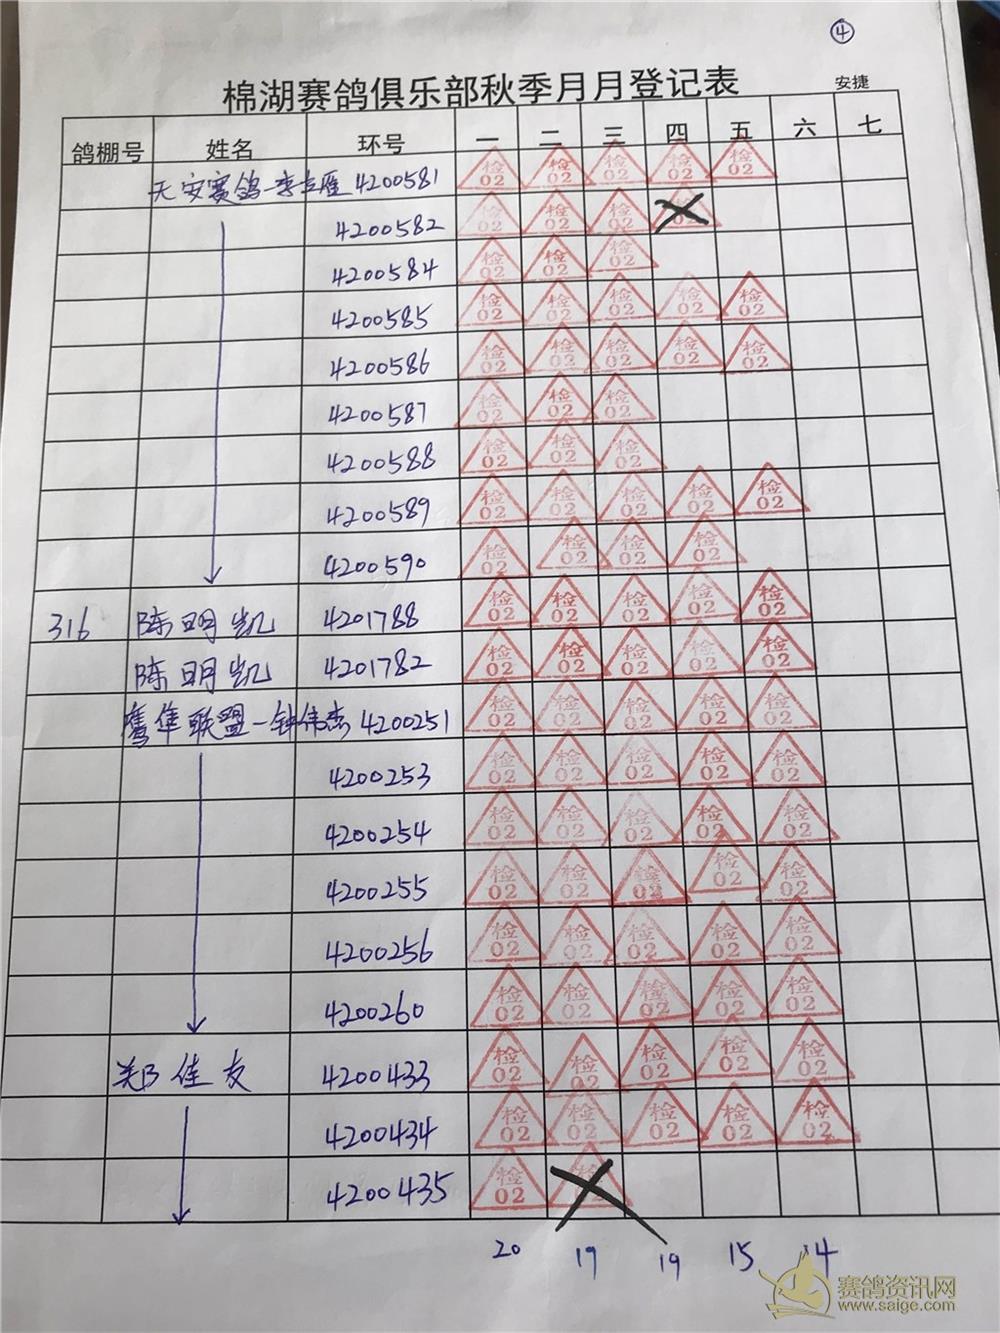 ④
棉湖赛鸽俱乐部秋季月月登记表
安捷
鸽棚号 姓名 环号 一 二 三 四 五 六 七
天安赛鸽-李立雁 4200581 检02 检02 检02 检02 检02
4200582 检02 检02 检02 检02
4200584 检02 检02 检02
4200585 检02 检02 检02 检02 检02
4200586 检02 检02 检02 检02 检02
4200587 检02 检02 检02
4200588 检02 检02 检02
4200589 检02 检02 检02 检02 检02
4200590 检02 检02 检02 检02
316 陈明凯 4201788 检02 检02 检02 检02 检02
陈明凯 4201782 检02 检02 检02 检02 检02
鹰隼联盟-钟伟杰 4200251 检02 检02 检02 检02 检02
4200253 检02 检02 检02 检02 检02
4200254 检02 检02 检02 检02 检02
4200255 检02 检02 检02 检02 检02
4200256 检02 检02 检02 检02 检02
4200260 检02 检02 检02 检02 检02
郑佳友 4200433 检02 检02 检02 检02 检02
4200434 检02 检02 检02 检02 检02
4200435 检02 检
20 19 19 15 14
赛鸽资讯网
www.saige.com